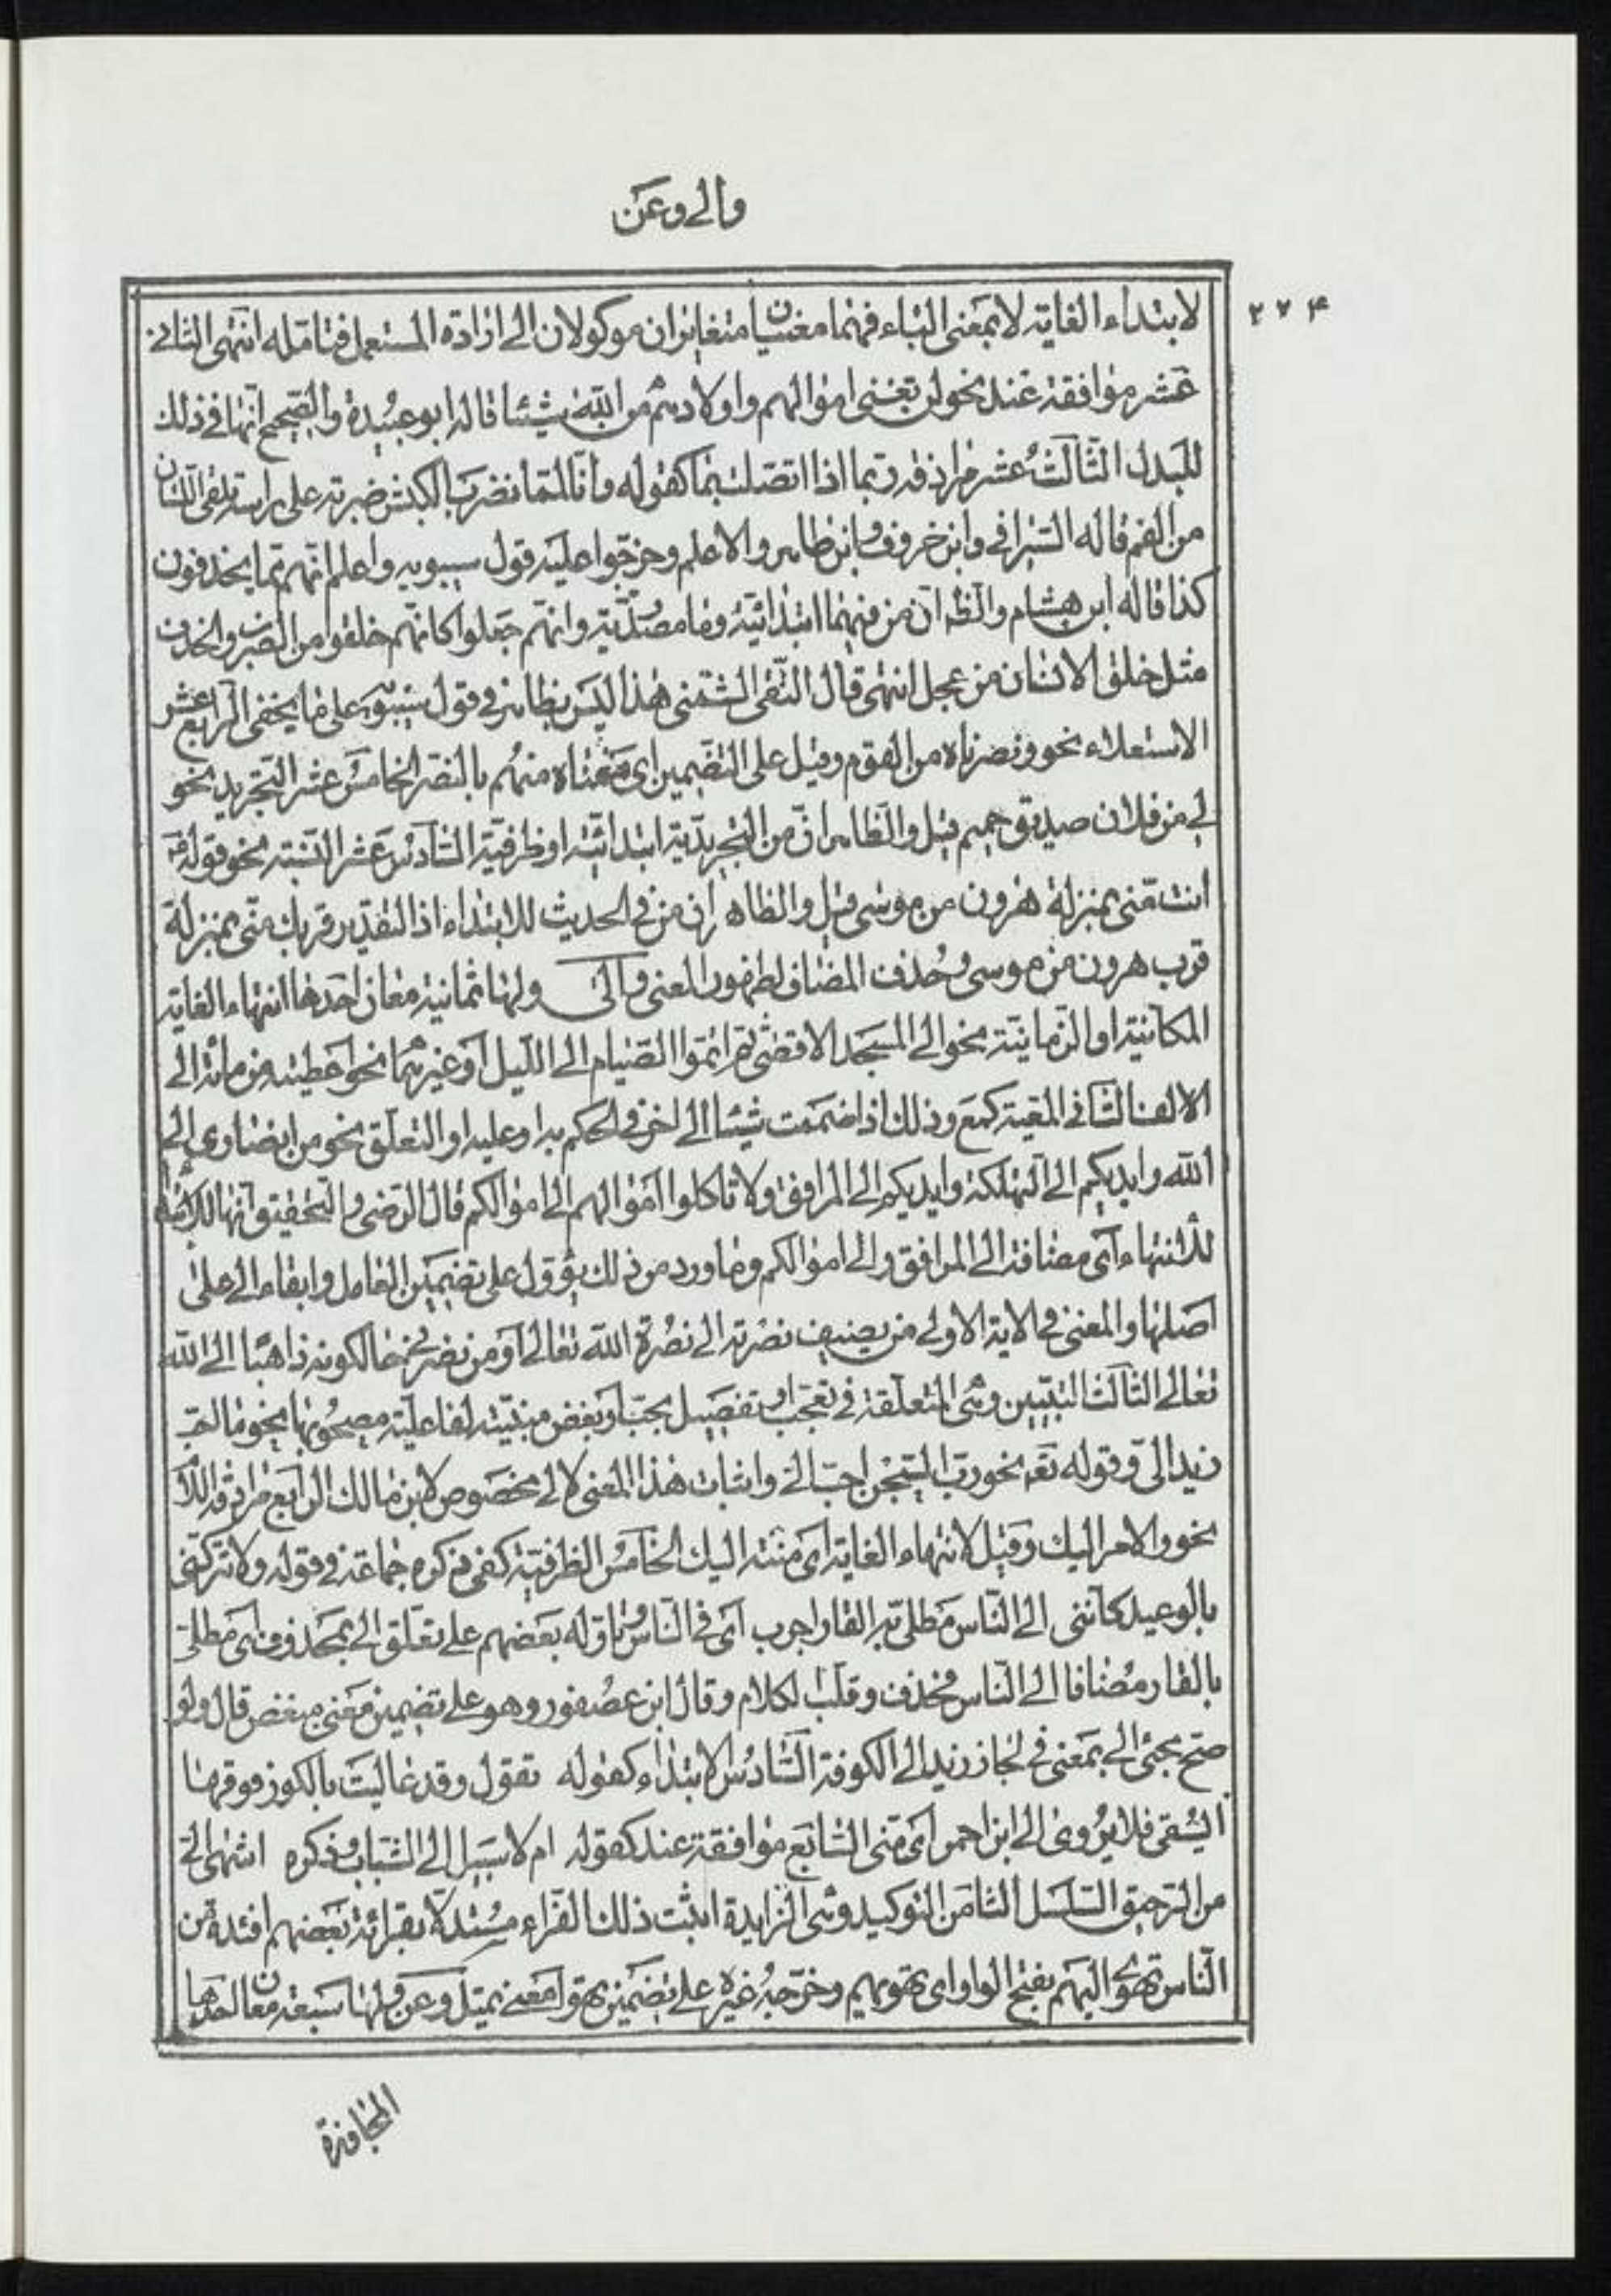 والى وعن
۲۷۴
لابتداء الغاية لا بمعنى الباء فهما معنيان متغايران موكولان الى ارادة المستعمل فتامله انتهى الثانى
عشر موافقة عند نحو لن تغنى اموالهم ولا اولادهم من الله شيئا قاله ابو عبيدة والصحيح انها فى ذلك
للبدل الثالث عشر مرادفة ربما اذا اتصلت بما كقوله وانا لمما نضرب الكبش ضربة على راسه تلقى اللسان
من الفم قاله السيرافى وابن خروف وابن طاهر والاعلم وخرجوا عليه قول سيبويه واعلم انهم مما يحذفون
كذا قاله ابن هشام والظ ان من فيهما ابتدائية وما مصدرية وانهم جعلوا كانهم خلقوا من الضرب والحذف
مثل خلق الانسان من عجل انتهى قال التقى الشمنى هذا ليس بظاهر فى قول سيبويه على ما يخفى الرابع عشر
الاستعلاء نحو ونصرناه من القوم وقيل على التضمين اى منعناه منهم بالنصر الخامس عشر التجريد نحو
لى من فلان صديق حميم قيل والظاهر ان من التجريدية ابتدائية او ظرفية السادس عشر النسبة نحو قوله
انت منى بمنزلة هرون من موسى قيل والظاهر ان من فى الحديث للابتداء اذ التقدير قربك منى بمنزلة
قرب هرون من موسى وحذف المضاف لظهور المعنى والى ولها ثمانية معان احدها انتهاء الغاية
المكانية او الزمانية نحو الى المسجد الاقصى ثم اتموا الصيام الى الليل او غيرهما نحو اعطيته من مائة الى
الالف الثانى المعية كمع وذلك اذا ضممت شيئا الى اخر فى الحكم به او عليه او التعلق نحو من انصارى الى
الله وايديكم الى التهلكة وايديكم الى المرافق ولا تاكلوا اموالهم الى اموالكم قال الرضى والتحقيق انها
للانتهاء اى مضافة الى المرافق والى اموالكم وما ورد من ذلك يؤول على تضمين العامل وابقاء الى على
اصلها والمعنى فى الاية الاولى من يضيف نصرته الى نصرة الله تعالى او من نصرنى حالكونه ذاهبا الى الله
تعالى الثالث التبيين وهى المتعلقة فى تعجب او تفضيل بحب او بغض مبينة لفاعلية مصحوبها نحو ما احب
زيدا الى وقوله تعه نحو رب السجن احب الى واثبات هذا المعنى لالى مخصوص لابن مالك الرابع مرادفة اللام
نحو والامر اليك وقيل لانتهاء الغاية اى منته اليك الخامس الظرفية كفى ذكره جماعة فى قوله ولا تتركنى
بالوعيد كاننى الى الناس مطلى به القار اجرب اى فى الناس وتاوله بعضهم على تعلق الى بمحذوف اى مطلى
بالقار مضافا الى الناس فحذف وقلب الكلام وقال ابن عصفور وهو على تضمين معنى مبغض قال ولو
صح مجئى الى بمعنى فى لجاز زيد الى الكوفة السادس الابتداء كقوله تقول وقد عاليت بالكوز فوقها
ايسقى فلا يروى الى ابن احمر اى منى السابع موافقة عند كقوله ام لا سبيل الى الشباب وذكره اشهى الى
من الرحيق السلسل الثامن التوكيد وهى الزايدة اثبت ذلك الفراء مستدلا بقرائة بعضهم افئدة من
الناس تهوى اليهم بفتح الواو اى تهويهم وخرجه غيره على تضمين تهوى معنى تميل وعن ولها سبعة معان احدها
المجاوزة